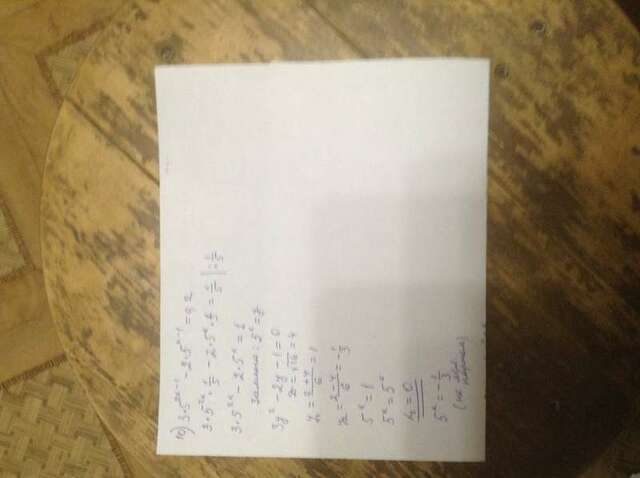 10) 3·5^(2x-1) - 2·5^(x-1) = 0,2
3·5^(2x)·1/5 - 2·5^x·1/5 = 1/5 | : 1/5
3·5^(2x) - 2·5^x = 1
замена: 5^x = y
3y² - 2y - 1 = 0
D = √16 = 4
y₁ = (2+4)/6 = 1
y₂ = (2-4)/6 = -1/3
5^x = 1
5^x = 5^0
x = 0
5^x = -1/3